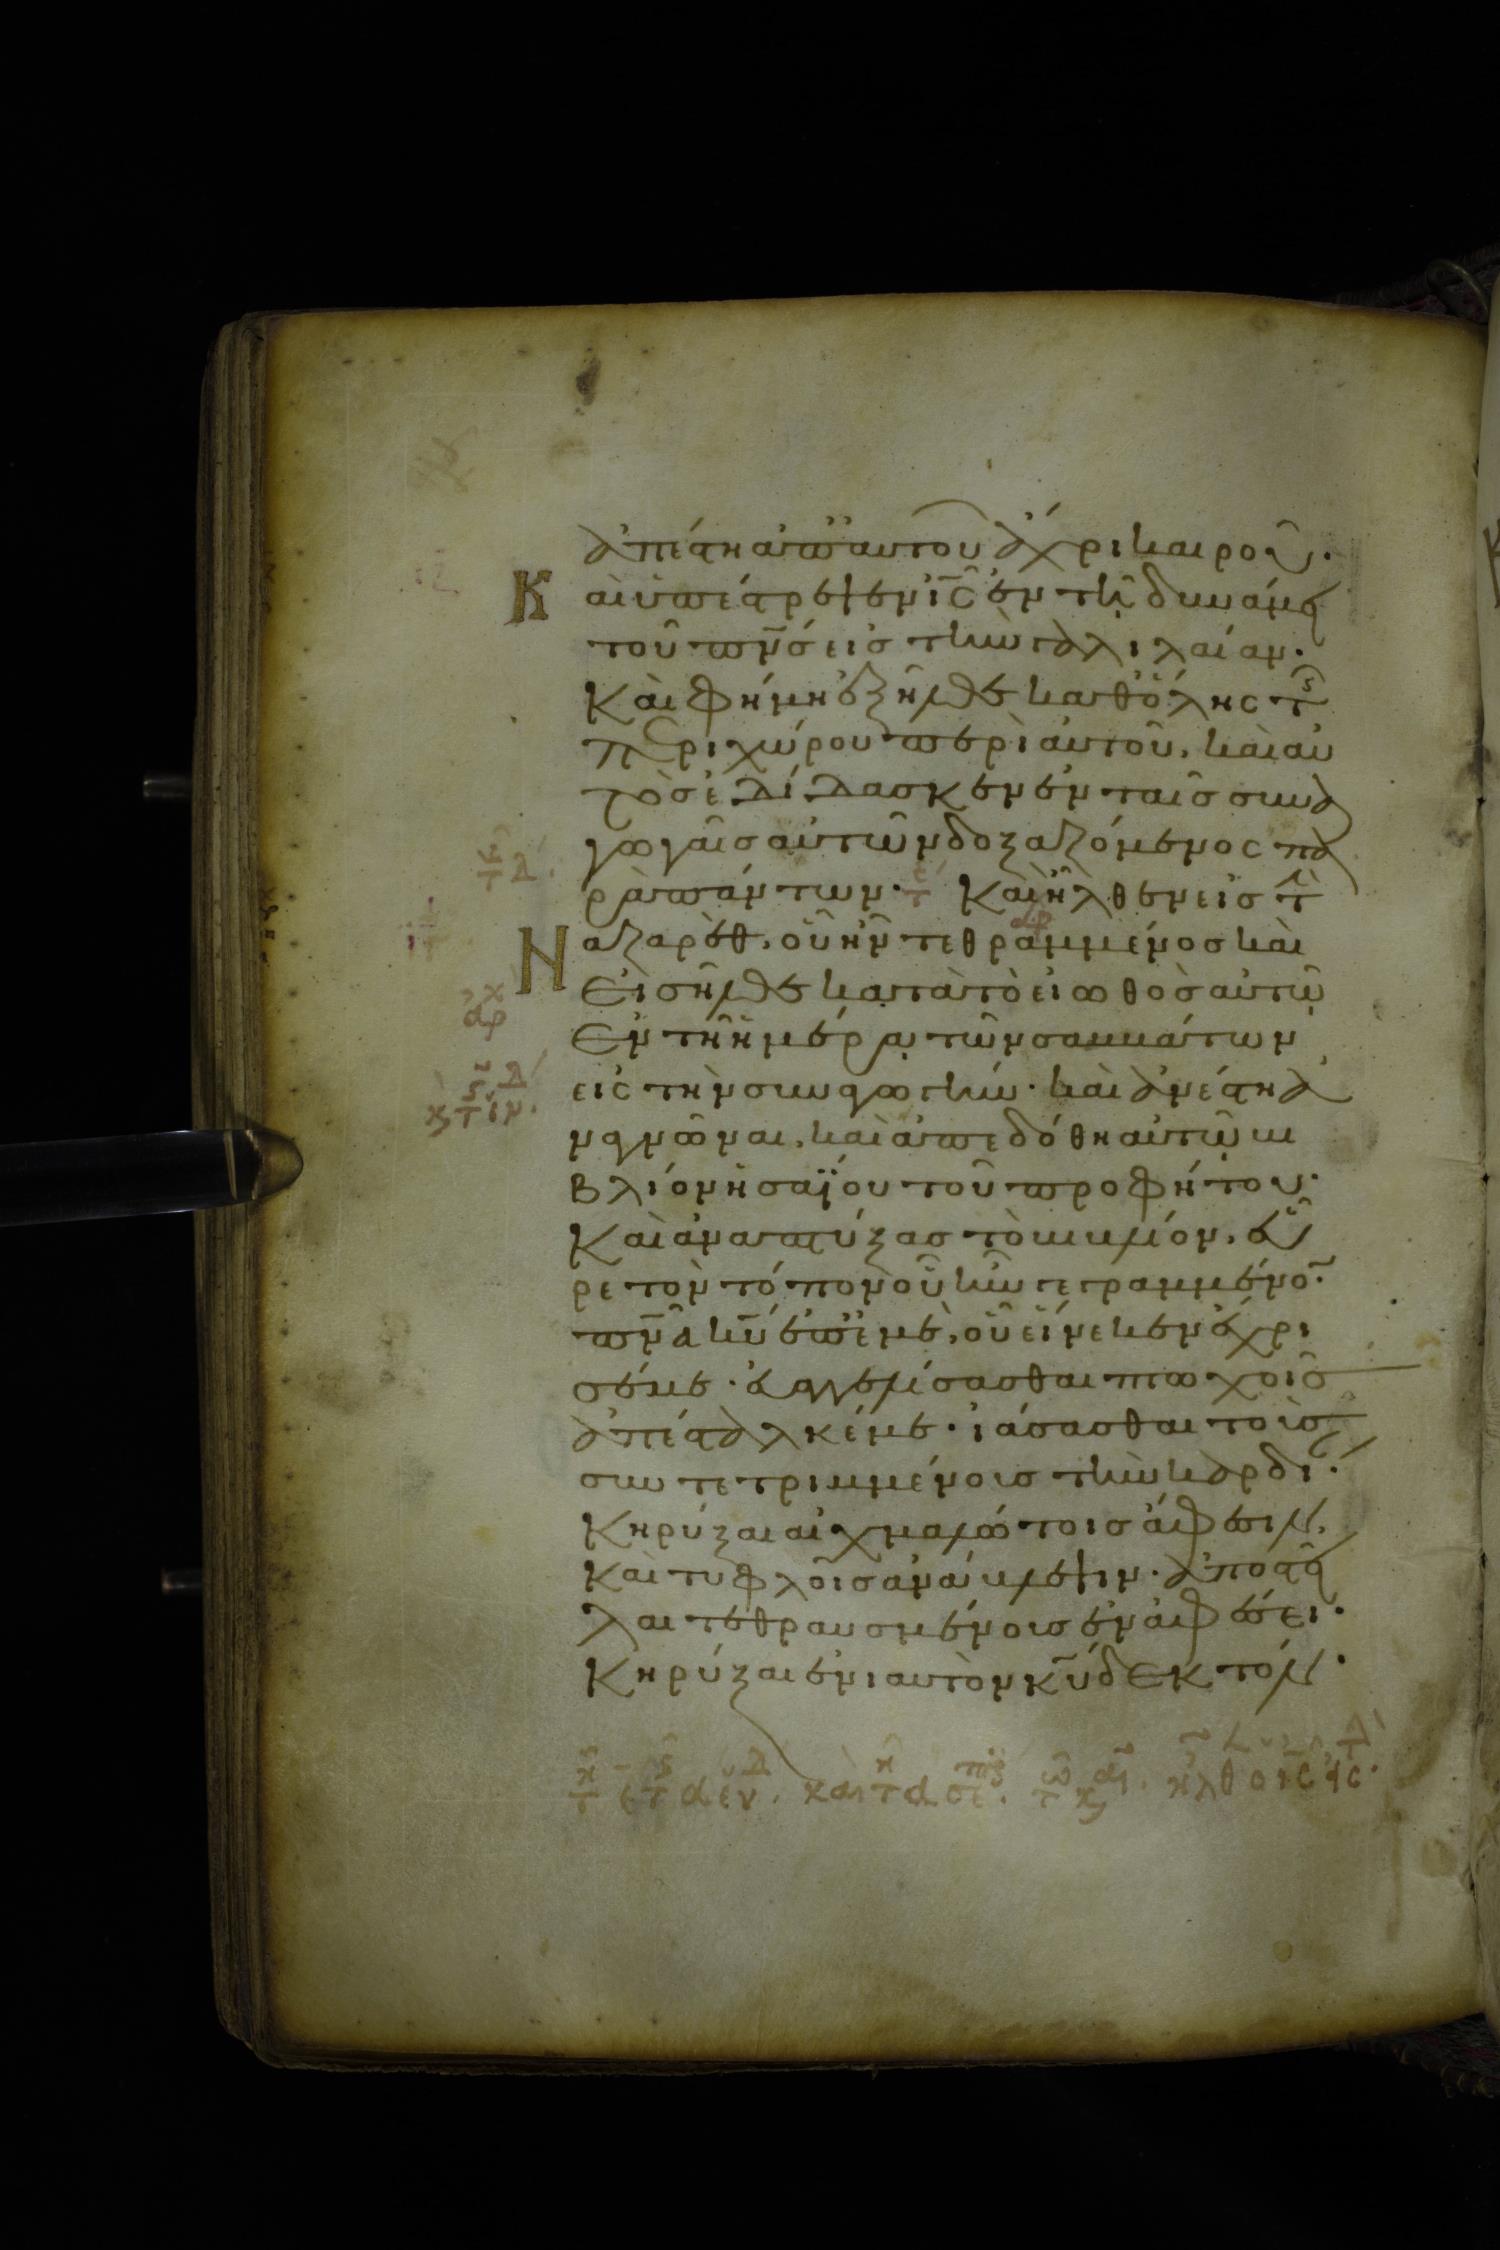 ἀπέστη ἀπ αὐτοῦ ἄχρι καιροῦ.
Καὶ ὑπέστρεψεν ὁ ἰς ἐν τῇ δυνάμει
τοῦ πνς εἰς τὴν γαλιλαίαν.
Καὶ φήμη ἐξῆλθε καθ ὅλης τ
περιχώρου περὶ αὐτοῦ. καὶ αὐ
τὸς ἐδίδασκεν ἐν ταῖς συνα
γωγαῖς αὐτῶν δοξαζόμενος πα
ρὰ πάντων. Καὶ ἦλθεν εἰς τ
Ναζαρὲθ. οὗ ἦν τεθραμμένος καὶ
Εἰσῆλθε κατὰ τὸ εἰωθὸς αὐτῷ
Ἐν τῇ ἡμέρᾳ τῶν σαββάτων
εἰς τὴν συναγωγήν. καὶ ἀνέστη ἀ
ναγνῶναι. καὶ ἀπεδόθη αὐτῷ βι
βλίον ἠσαΐου τοῦ προφήτου.
Καὶ ἀναπτύξας τὸ βιβλίον. εὗ
ρε τὸν τόπον οὗ ἦν γεγραμμένο
πνα κυ ἐπ ἐμέ. οὗ εἵνεκεν ἔχρι
σέ με. εὐαγγελίσασθαι πτωχοῖς
ἀπέσταλκέ με. ἰάσασθαι τοὺς
συντετριμμένους τὴν καρδί.
Κηρύξαι αἰχμαλώτοις ἄφεσιν.
Καὶ τυφλοῖς ἀνάβλεψιν. ἀποστεῖ
λαι τεθραυσμένους ἐν ἀφέσει.
Κηρύξαι ἐνιαυτὸν κυ δεκτόν.